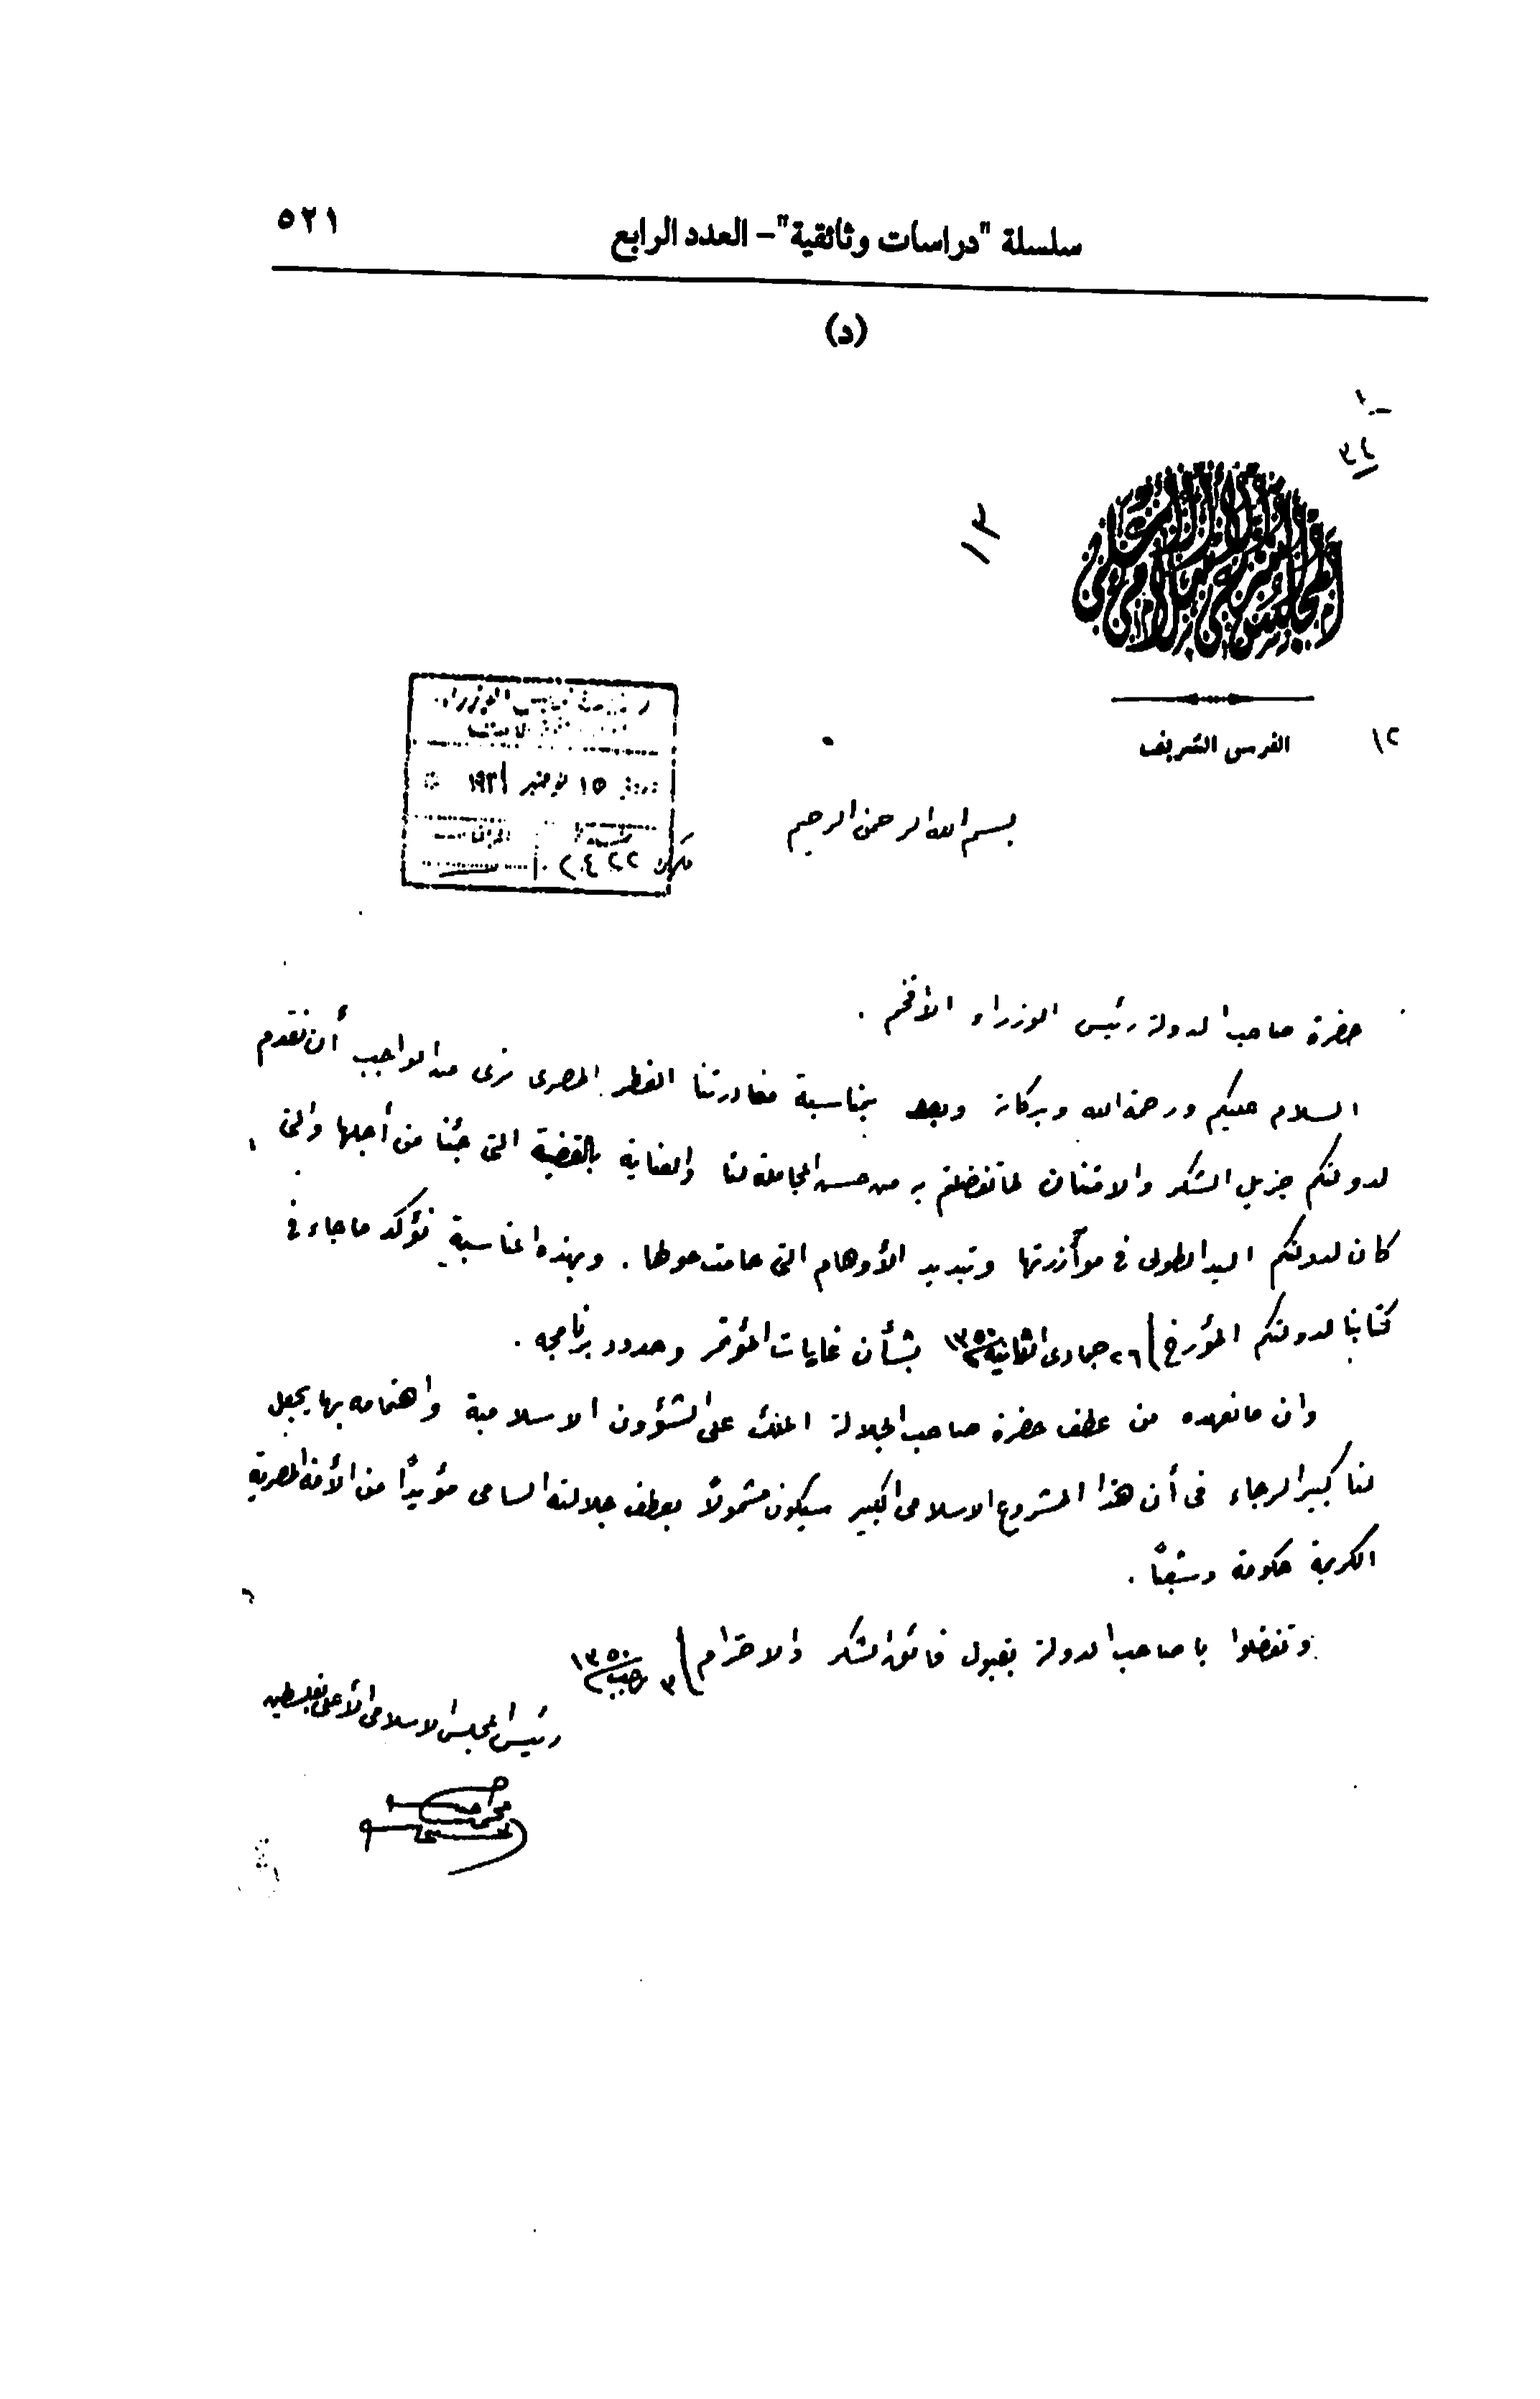 سلسلة "دراسات وثائقية" – العدد الرابع ٥٢١
(د)
٣٤
١٢
القدس الشريف
١٢
١٥ نوفمبر ١٩٣١
بسم الله الرحمن الرحيم
حضرة صاحب الدولة رئيس الوزراء الأفخم .
السلام عليكم ورحمة الله وبركاته وبعد بمناسبة مغادرتنا القطر المصرى نرى من الواجب أن نقدم
لدولتكم جزيل الشكر والامتنان لما تفضلتم به من حسن المجاملة لنا والعناية بالقضية التى جئنا من أجلها والتى
كان لدولتكم اليد الطولى فى موآزرتها وتبديد الأوهام التى حامت حولها . وبهذه المناسبة نؤكد ما جاء فى
كتابنا لدولتكم المؤرخ ٢٦ جمادى الثانية ١٣٥٠ بشأن غايات المؤتمر وحدود برنامجه .
وان ما نعهده من عطف حضرة صاحب الجلالة الملك على الشؤون الاسلامية واهتمامه بها يجعل
لنا كبير الرجاء فى أن هذا المشروع الاسلامى الكبير سيكون مشمولاً بعطف جلالته السامى مؤيداً من الأمة المصرية
الكريمة حكومة وشعباً .
وتفضلوا يا صاحب الدولة بقبول فائق الشكر والاحترام ٣ رجب ١٣٥٠
رئيس المجلس الاسلامى الأعلى بفلسطين